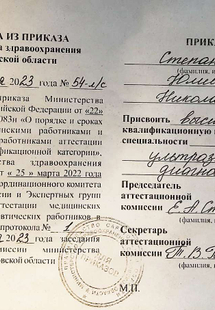 ИЗ ПРИКАЗА
здравоохранения
ской области
2023 года № 54-л/с
приказа Министерства
Российской Федерации от «22»
«О порядке и сроках
скими работниками и
ботниками аттестации
ификационной категории»,
ства здравоохранения
от « 25 » марта 2022 года
ординационного комитета
и Экспертных групп
тестации медицинских
втических работников в
протокола № 1
2023 года заседания
иссии министерства
овской области
Степан
(фамилия,
Юли
Никола
Присвоить
квалификационную
специальности
ультраз
диагно
Председатель
аттестационной
комиссии Е.А.Ст
(фамилия,
Секретарь
аттестационной
комиссии Т.В.
(фамилия,
М.П.